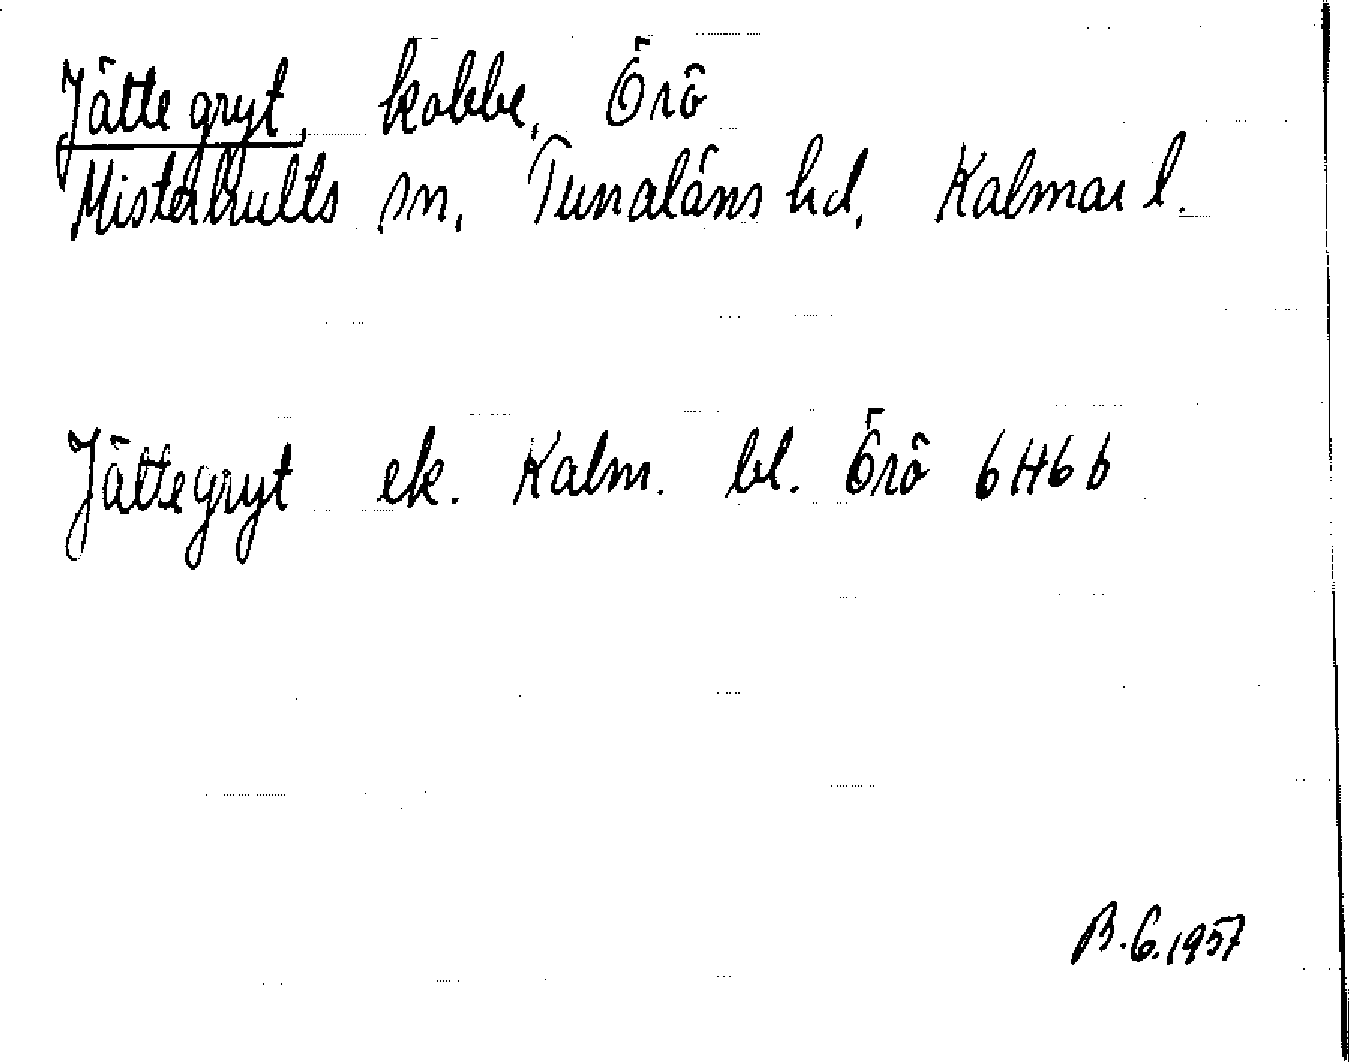 Jättegryt, kobbe, Örö
Misterhults sn, Tunaläns hd, Kalmar l.
Jättegryt ek. Kalm. bl. Örö 6H6b
B.G.1957